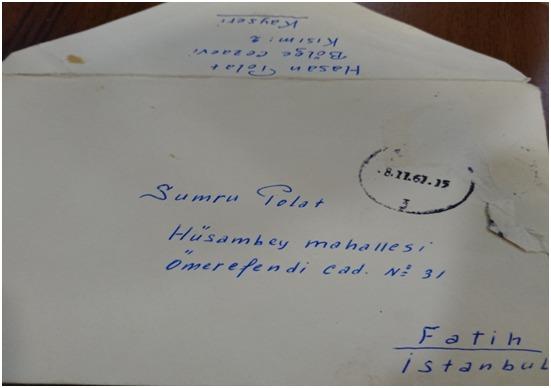 Hasan Polat
Bölge Cezaevi
Kısım: 2
Kayseri
8.11.61.15
3
Sumru Polat
Hüsambey mahallesi
Ömerefendi Cad. Nº 31
Fatih
İstanbul